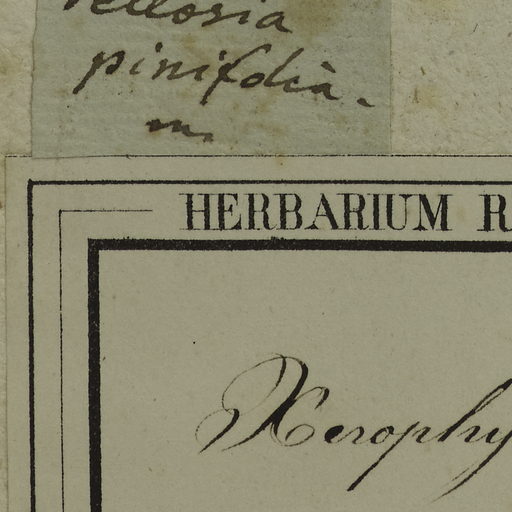 Vellosia
pinifolia.
m.
HERBARIUM R
Xerophy